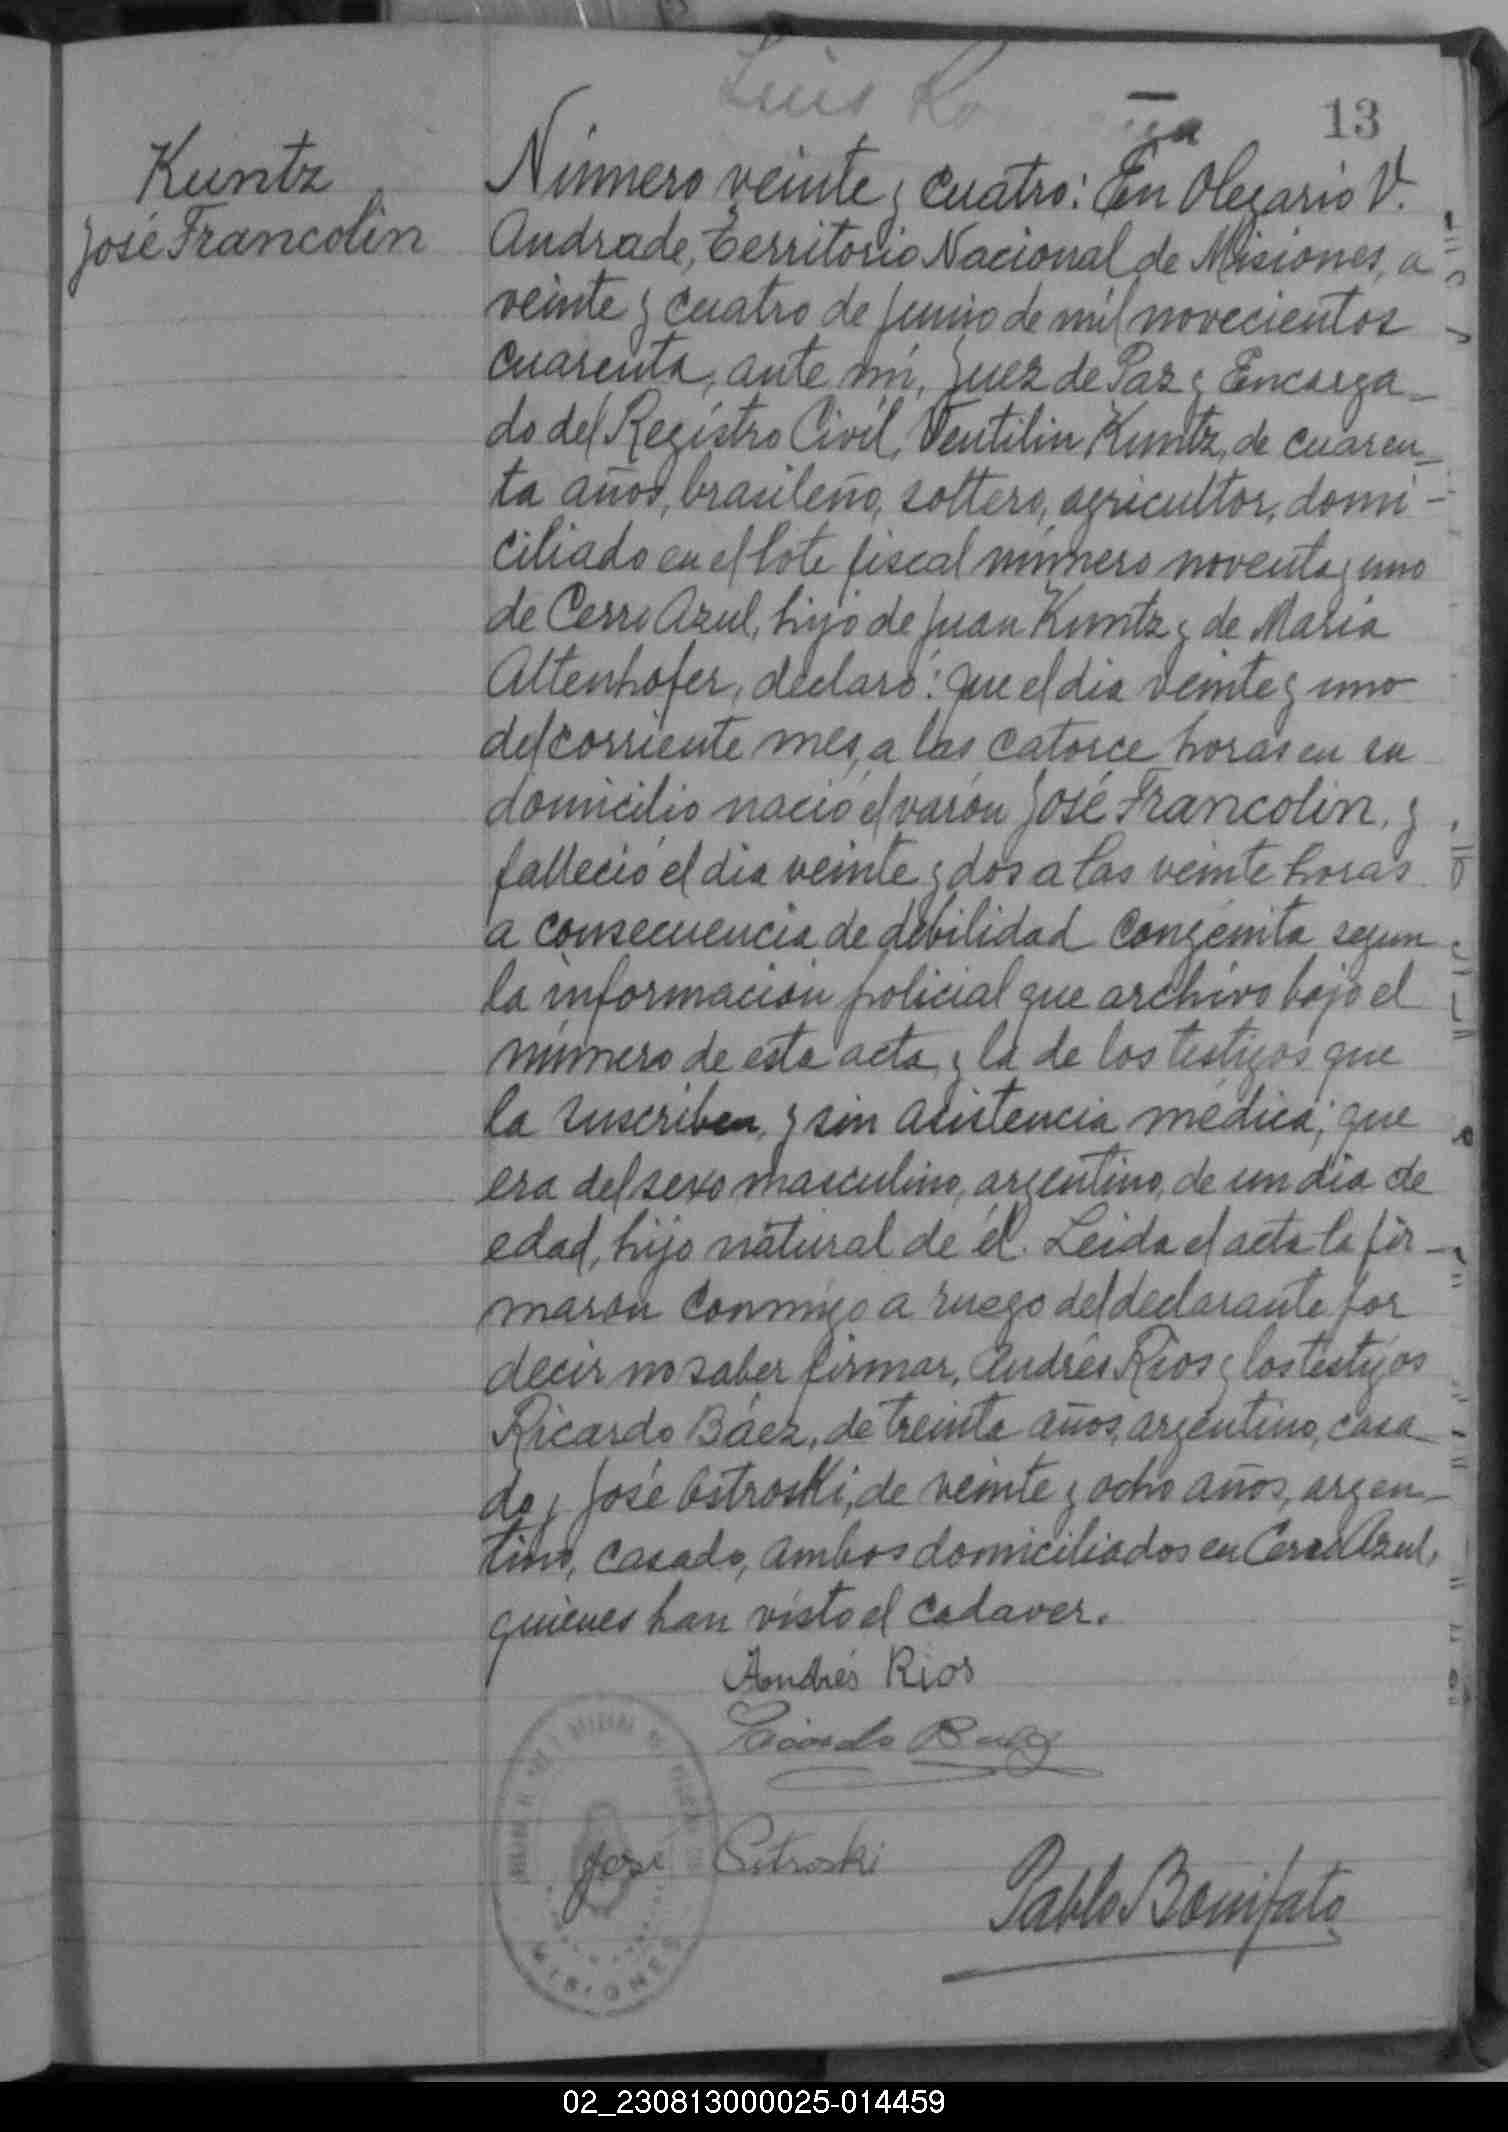 Luis
13
Kuntz
José Francolin
Número veinte y cuatro: En Olegario V.
Andrade, Territorio Nacional de Misiones, a
veinte y cuatro de junio de mil novecientos
cuarenta, ante mí, Juez de Paz y Encarga-
do del Registro Civil, Ventilin Kuntz, de cuaren-
ta años, brasileño, soltero, agricultor, domi-
ciliado en el lote fiscal número noventa y uno
de Cerro Azul, hijo de Juan Kuntz y de Maria
Altenhofer, declaró: que el dia veinte y uno
del corriente mes, a las catorce horas en su
domicilio nació el varón José Francolin, y
falleció el dia veinte y dos a las veinte horas
a consecuencia de debilidad congénita segun
la información policial que archivo bajo el
número de esta acta y la de los testigos que
la suscriben, y sin asistencia médica; que
era del sexo masculino, argentino, de un dia de
edad, hijo natural de él. Leida el acta la fir-
maron conmigo a ruego del declarante por
decir no saber firmar, Andrés Rios y los testigos
Ricardo Báez, de treinta años, argentino, casa
do y José Ostroski, de veinte y ocho años, argen-
tino, casado, ambos domiciliados en Cerro Azul,
quienes han visto el cadaver.
Andrés Rios
Ricardo Baez
José Ostroski
Pablo Bonifato
MISIONES
02_230813000025-014459